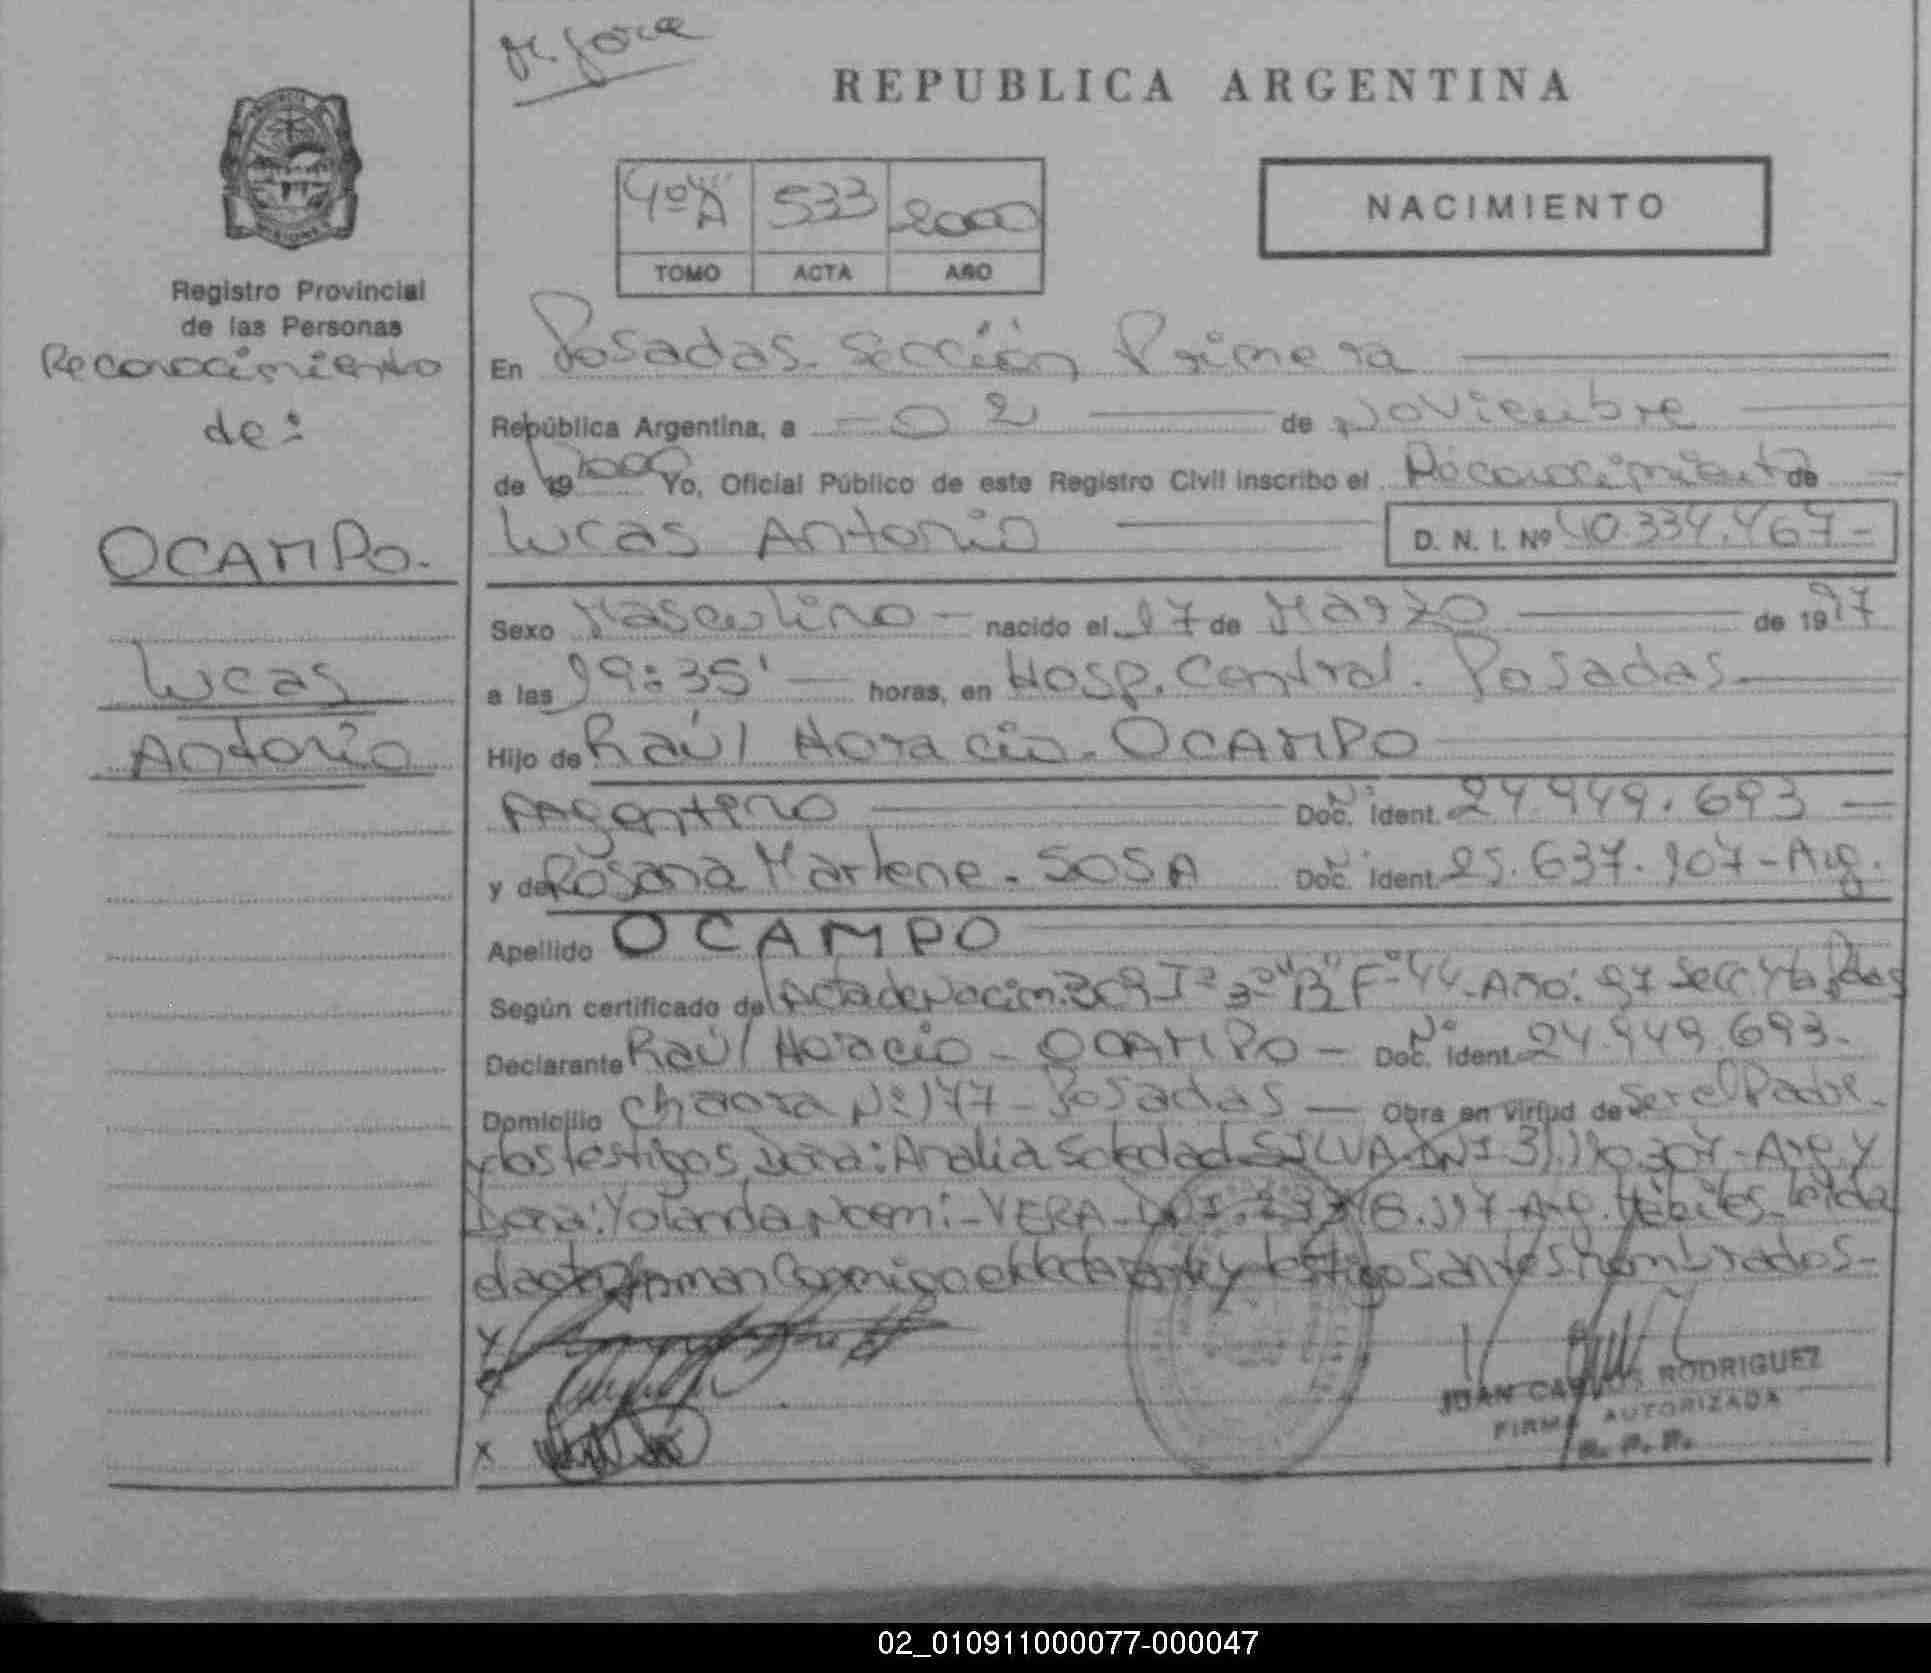 REPUBLICA ARGENTINA
4º "A" 533 2000
TOMO ACTA AÑO
NACIMIENTO
Registro Provincial
de las Personas
Reconocimiento
de:
OCAMPO.
Lucas
Antonio
En Posadas. Sección Primera
República Argentina, a - 02 de Noviembre
de 19 2000 Yo, Oficial Público de este Registro Civil inscribo el Reconocimiento de
Lucas Antonio D. N. I. Nº 40.334.467-
Sexo Masculino - nacido el 17 de Marzo de 1997
a las 19:35' horas, en Hosp. Central. Posadas
Hijo de Raúl Horacio. OCAMPO
Argentino Doc. Ident. Nº 24.949.693
y de Rosana Marlene. SOSA Doc. Ident. Nº 25.637.107-Arg.
Apellido OCAMPO
Según certificado de Acta de Nacim. Tº 3º "B" Fº 44-Año: 97 Secc 4ta Pdas
Declarante Raúl Horacio - OCAMPO - Doc. Ident. Nº 24.949.693-
Domicilio Chacra Nº 177 - Posadas - Obra en virtud de Ser el Padre-
y los testigos Doña: Analia Soledad SILVA DNI 31.190.307-Arg y
Doña: Yolanda Noemi-VERA-DNI. Arg. Hábiles-Leida
el acta firman Conmigo el declarante y testigos antes nombrados-
JUAN CARLOS RODRIGUEZ
FIRMA AUTORIZADA
R. P. P.
02_010911000077-000047